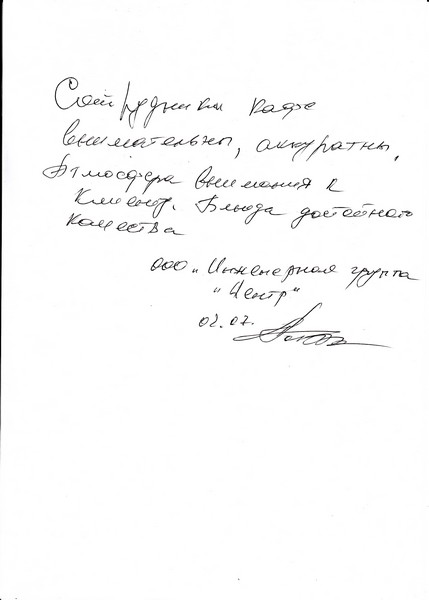 Сотрудники кафе
внимательны, аккуратны.
Атмосфера внимания к
клиенту. Блюда достойного
качества
ООО „Инженерная группа
"Центр"
02.07.